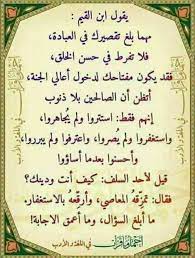 يقول ابن القيم :
مهما بلغ تقصيرك في العبادة،
فلا تفرط في حسن الخلق،
فقد يكون مفتاحك لدخول أعالي الجنة،
أتظن أن الصالحين بلا ذنوب
إنهم فقط: استتروا ولم يُجاهروا،
واستغفروا ولم يُصروا، واعترفوا ولم يبرروا،
وأحسنوا بعدما أساؤوا
قيل لأحد السلف: كيف أنت ودينك؟
فقال: تمزّقه المعاصي، وأرقّعه بالاستغفار.
ما أبلغ السؤال، وما أعمق الاجابة!